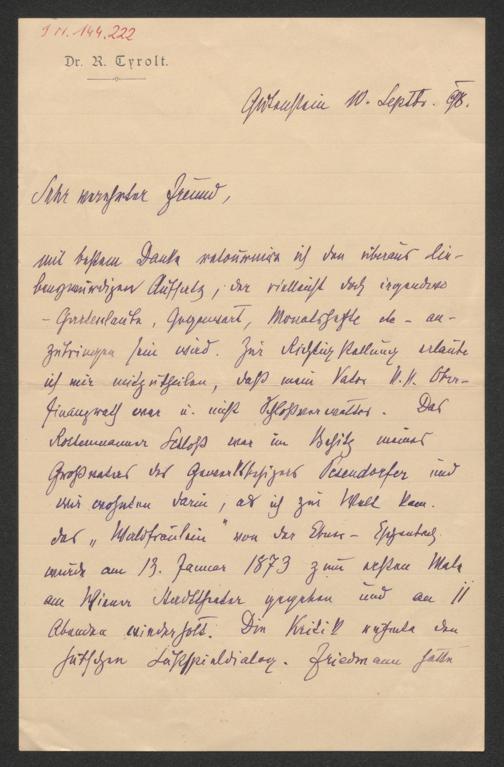 I N. 144.222
Dr. R. Tyrolt.
Gutenstein 10. Septbr. 98.
Sehr verehrter Freund,
mit bestem Danke retournire ich den überaus lie-
benswürdigen Aufsatz, der vielleicht doch irgendwo
- Gartenlaube, Gegenwart, Monatshefte etc - an-
zubringen sein wird. Zur Richtigstellung erlaube
ich mir mitzutheilen, daß mein Vater k.k. Ober-
finanzrath war u. nicht Schloßverwalter. Das
Rottenmanner Schloß war im Besitz meines
Großvaters des Gewerksbesitzers Pesendorfer und
wir wohnten darin, als ich zur Welt kam.
das „Waldfräulein" von der Ebner-Eschenbach
wurde am 13. Januar 1873 zum ersten Male
am Wiener Stadttheater gegeben und an 11
Abenden wiederholt. Die Kritik rühmte den
hübschen Lustspieldialog. Friedmann hatte